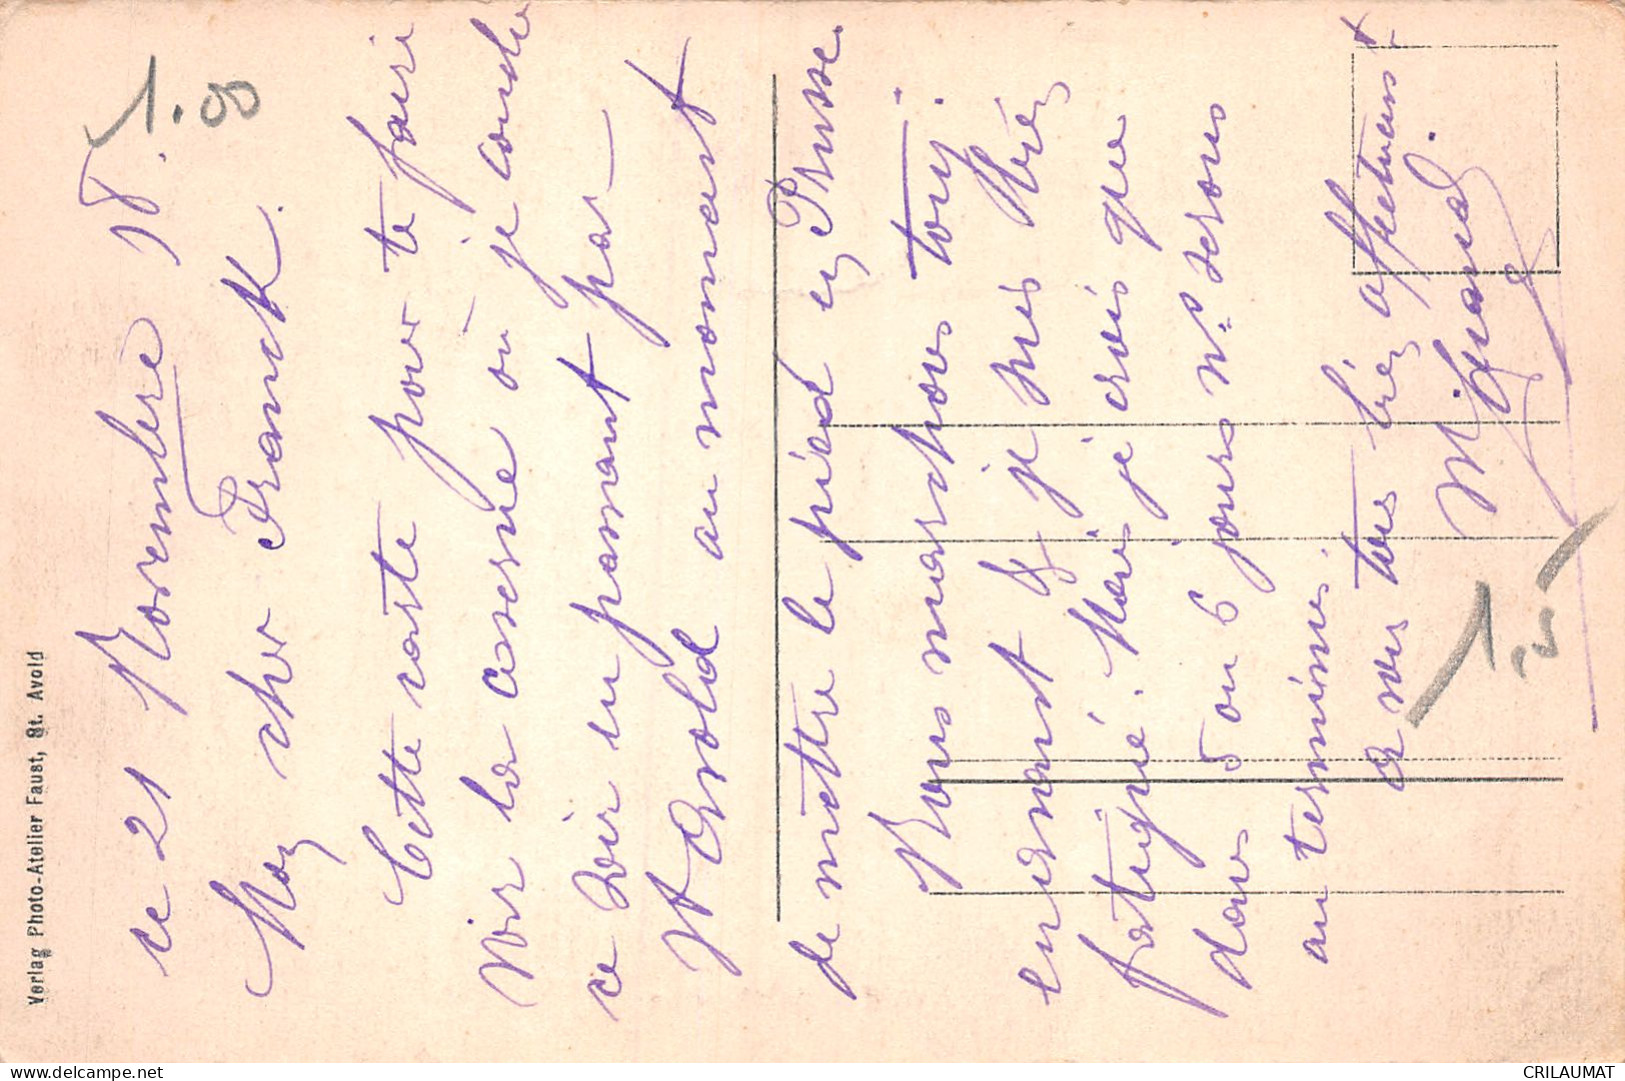 ce 21 Novembre 18.
Mon cher Franck.
Cette carte pour te faire
voir la caserne où je couche
ce soir en passant par
St Avold au moment
de mettre le pied en Prusse.
Nous marchons tous j.
en avant & je suis très
fatigué. Mais je crois que
dans 5 ou 6 jours ns serons
au terminus.
à vous tous bien affectueust
1.00
1
Verlag Photo-Atelier Faust, St. Avold
CRILAUMAT